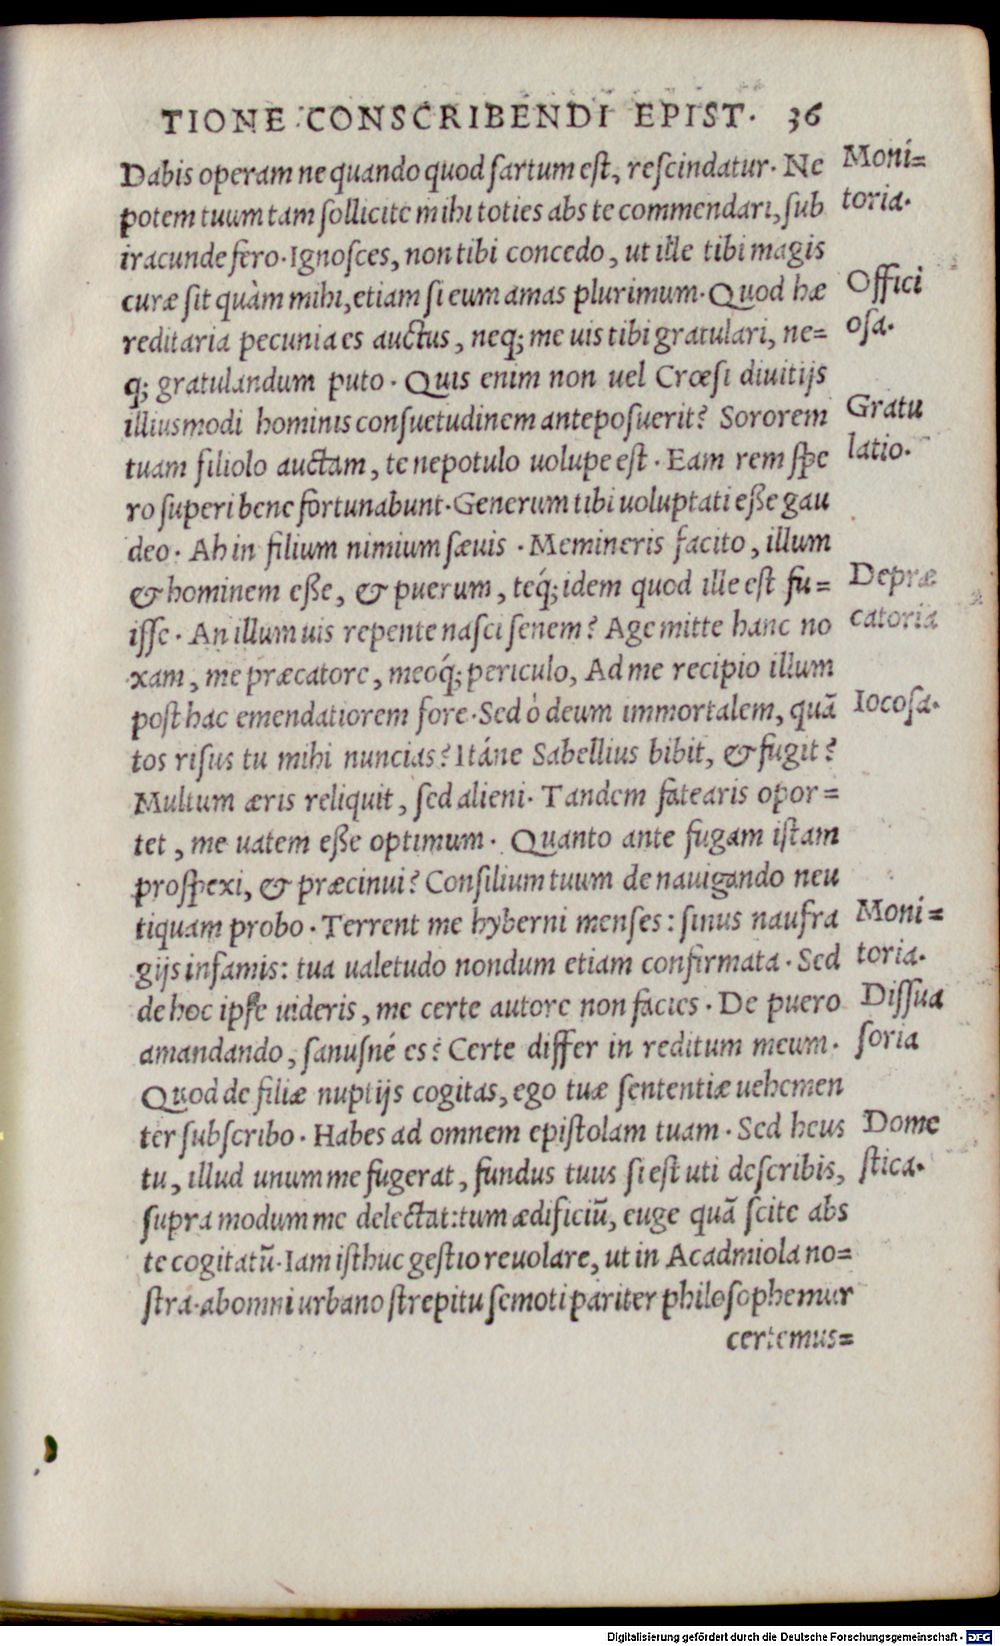 TIONE CONSCRIBENDI EPIST. 36
Dabis operam ne quando quod sartum est, rescindatur. Ne
potem tuum tam sollicite mihi toties abs te commendari, sub
iracunde fero. Ignosces, non tibi concedo, ut ille tibi magis
curæ sit quàm mihi, etiam si eum amas plurimum. Quod hæ
reditaria pecunia es auctus, neq; me uis tibi gratulari, ne=
q; gratulandum puto. Quis enim non uel Crœsi diuitijs
illiusmodi hominis consuetudinem anteposuerit? Sororem
tuam filiolo auctam, te nepotulo uolupe est. Eam rem spe
ro superi bene fortunabunt. Generum tibi uoluptati eße gau
deo. Ah in filium nimium sæuis. Memineris facito, illum
& hominem eße, & puerum, teq́; idem quod ille est fu=
isse. An illum uis repente nasci senem? Age mitte hanc no
xam, me præcatore, meoq́; periculo, Ad me recipio illum
post hac emendatiorem fore. Sed ò deum immortalem, quã
tos risus tu mihi nuncias? Itáne Sabellius bibit, & fugit?
Multum æris reliquit, sed alieni. Tandem fatearis opor=
tet, me uatem eße optimum. Quanto ante fugam istam
prospexi, & præcinui? Consilium tuum de nauigando neu
tiquam probo. Terrent me hyberni menses: sinus naufra
gijs infamis: tua ualetudo nondum etiam confirmata. Sed
de hoc ipse uideris, me certe autore non facies. De puero
amandando, sanusné es? Certe differ in reditum meum.
Quod de filiæ nuptijs cogitas, ego tuæ sententiæ uehemen
ter subscribo. Habes ad omnem epistolam tuam. Sed heus
tu, illud unum me fugerat, fundus tuus si est uti describis,
supra modum me delectat: tum ædificiũ, euge quã scite abs
te cogitatũ. Iam isthuc gestio reuolare, ut in Acadmiola no=
stra. ab omni urbano strepitu semoti pariter philosophemur
certemus=
Moni=
toria.
Offici
osa.
Gratu
latio.
Depræ
catoria
Iocosa.
Moni=
toria.
Dissua
soria
Dome
stica.
Digitalisierung gefördert durch die Deutsche Forschungsgemeinschaft - DFG